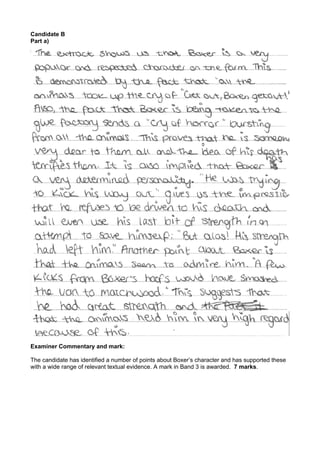 Candidate B
Part a)
The extract shows us that Boxer is a very
popular and respected character on the farm. This
is demonstrated by the fact that "all the
animals took up the cry of "Get out, Boxer, get out!"
Also, the fact that Boxer is being taken to the
glue factory sends a "cry of horror" bursting
from all the animals. This proves that he is someone
very dear to them all and the idea of his death
terrifies them. It is also implied that Boxer has
a very determined personality. "He was trying
to kick his way out" gives us the impression
that he refuses to be driven to his death and
will even use his last bit of strength in an
attempt to save himself: "But alas! His strength
had left him." Another point about Boxer is
that the animals seem to admire him. "A few
kicks from Boxer's hoofs would have smashed
the van to matchwood." This suggests that
he had great strength and
that the animals held him in very high regard
because of this.
Examiner Commentary and mark:
The candidate has identified a number of points about Boxer's character and has supported these
with a wide range of relevant textual evidence. A mark in Band 3 is awarded. 7 marks.